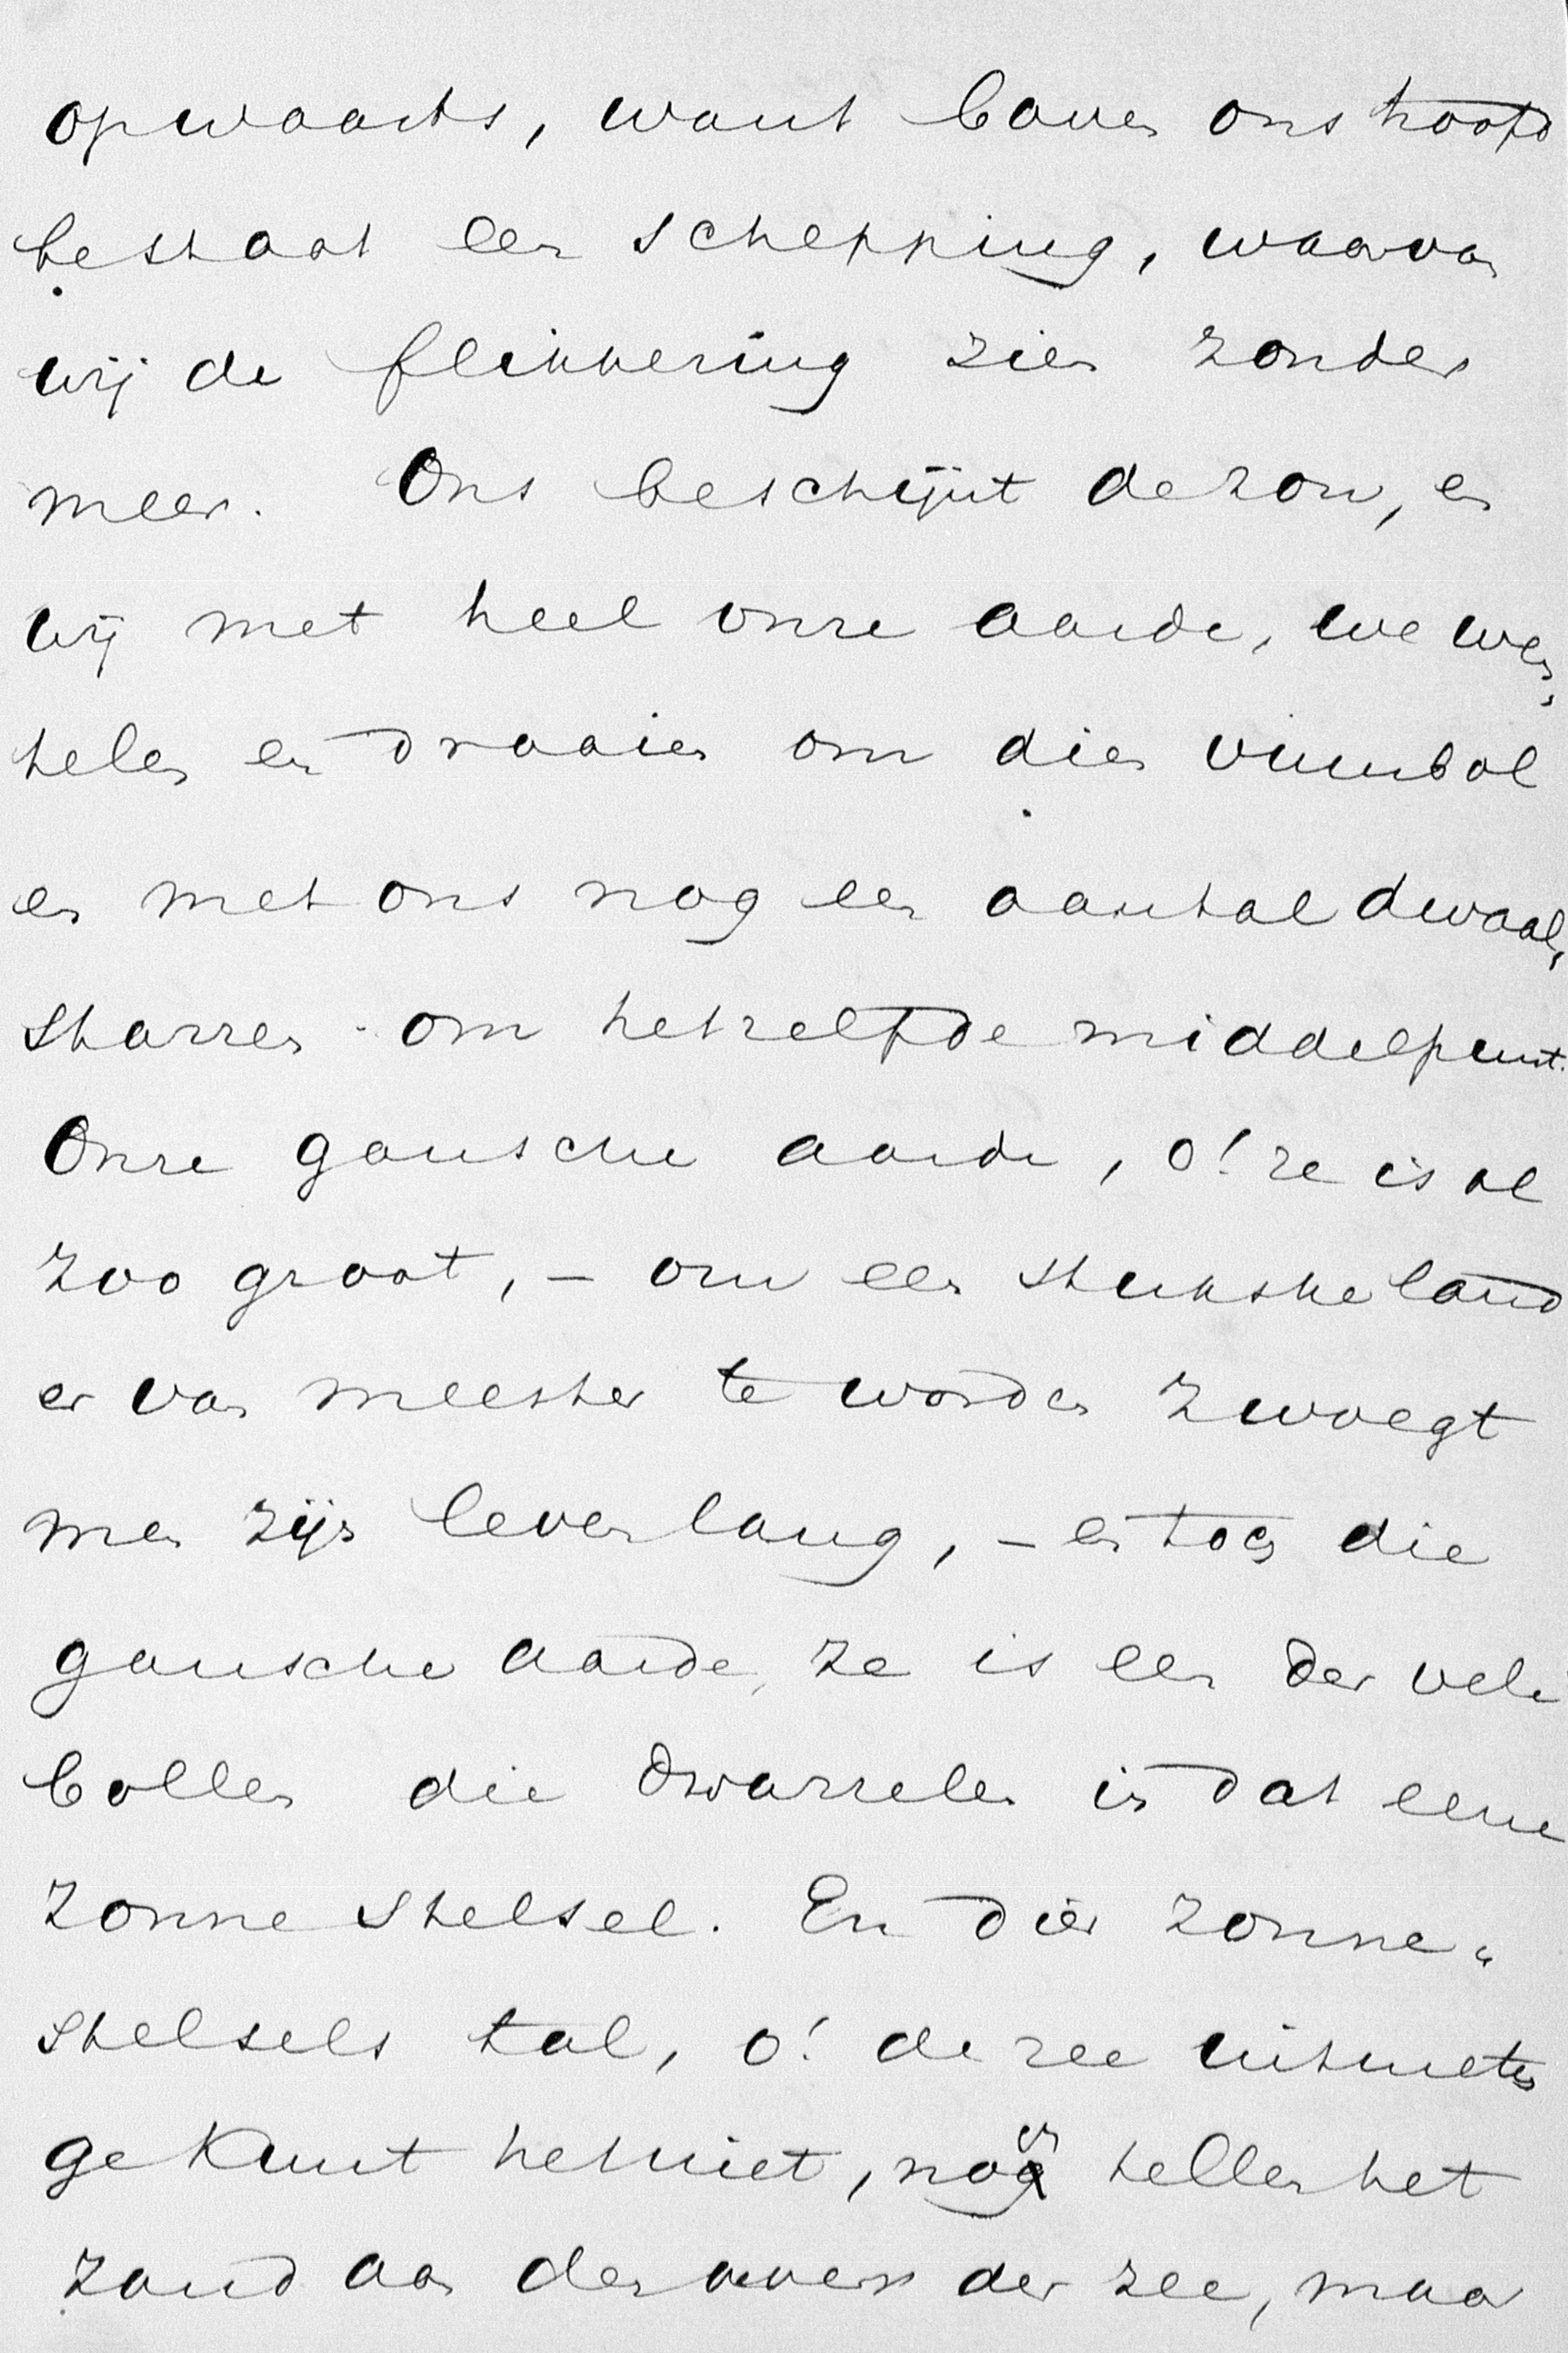 opwaarts, want boven ons hoofd
bestaat een schepping, waarvan
wij de flikkering zien zonder
meer. Ons beschijnt de zon, en
wij met heel onze aarde, we wen„
telen en draaien om dien vuurbol
en met ons nog een aantal dwaal„
starren om hetzelfde middelpunt.
Onze gansche aarde, o! ze is al
zoo groot, – om een stukske land
er van meester te worden zwoegt
men zijn leven lang, – en toch die
gansche aarde, ze is een der vele
bollen die dwarrelen in dat eene
zonne stelsel. En dier zonne„
stelsels tal, o! de zee uitmeten
ge kunt het niet, noch tellen het
zand aan den oever der zee, maar